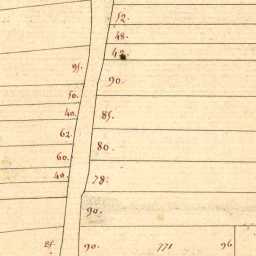 52.
48.
42.
95.
90.
50.
40.
85.
62.
80.
60.
40.
78.
90.
25.
90.
771
96